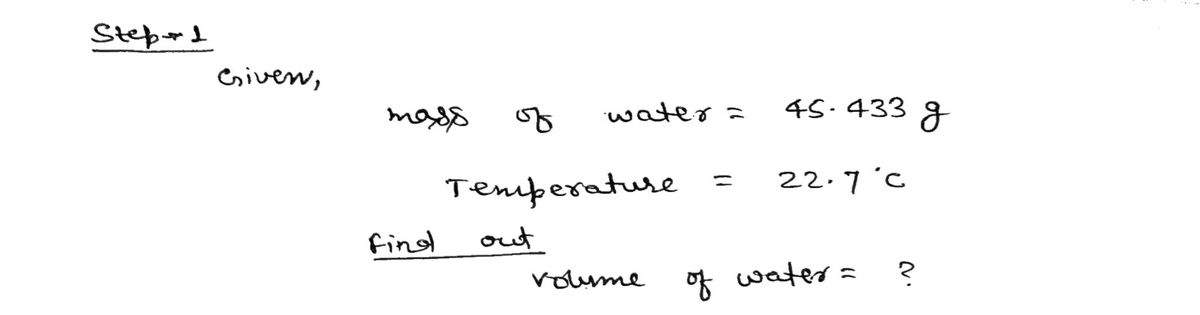 Step-1
Given,
mass of water = 45.433 g
Temperature = 22.7 °C
find out
volume of water = ?